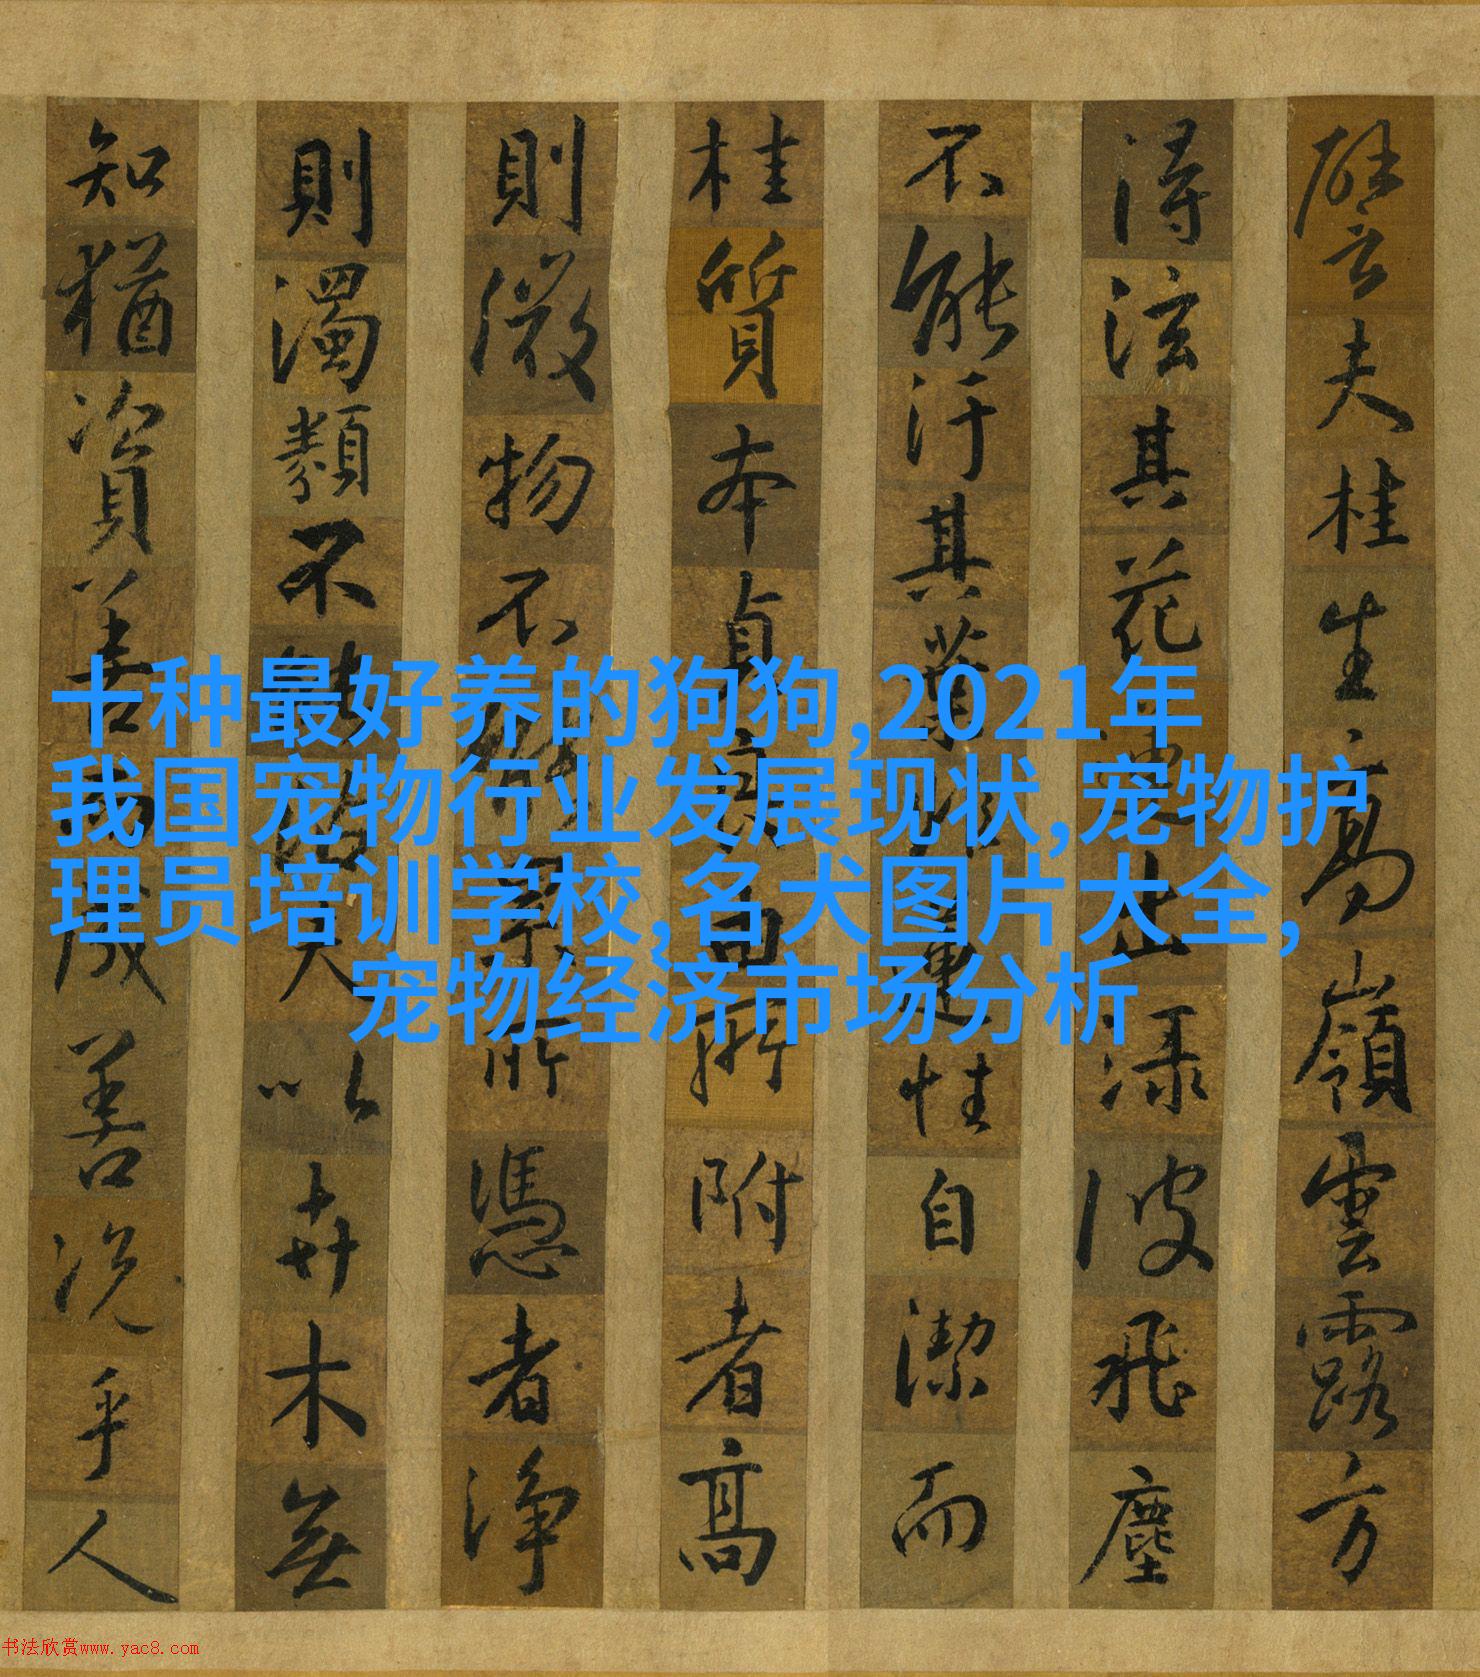 十种最好养的狗狗,2021年
我国宠物行业发展现状,宠物护
理员培训学校,名犬图片大全,
宠物经济市场分析
譬夫桂生高嶺雲露方
得泫其花蓮出淥波飛塵
不能汙其葉非蓮性自潔而
桂質本貞良由所附者高
則微物不能累所憑者淨
則濁類不能沾夫以卉木無
知猶資善而成善況乎人
书法欣赏www.yac8.com